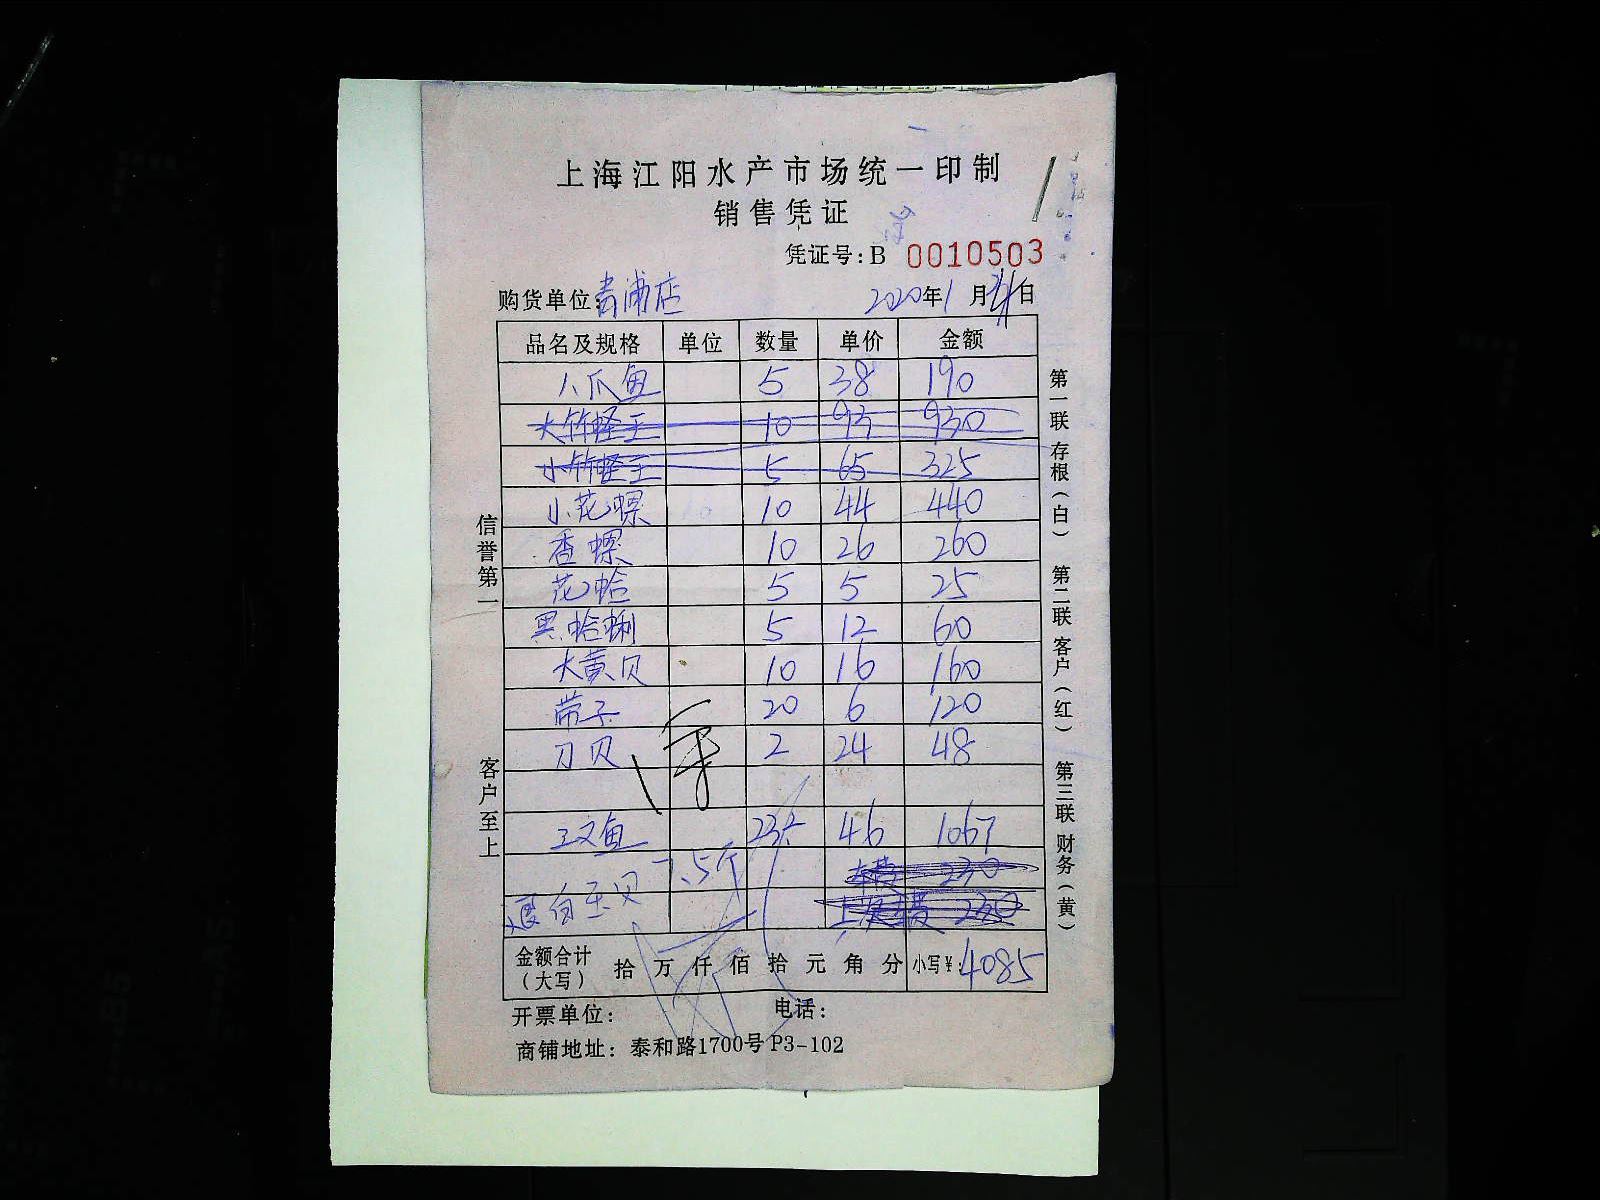 上海江阳水产市场统一印制
销售凭证
凭证号:B 0010503
购货单位:青浦店 2020年1月 日
品名及规格 单位 数量 单价 金额
八爪鱼 5 38 190
大竹蛏王 10 93 930
小竹蛏王 5 65 325
小花螺 10 44 440
香螺 10 26 260
花蛤 5 5 25
黑蛤蜊 5 12 60
大黄贝 10 16 160
带子 20 6 120
刀贝 2 24 48
三文鱼 46 1067
车费 230
退白玉贝 7.5斤 上次车费
金额合计(大写) 拾万仟佰拾元角分 小写¥:4085
开票单位: 电话:
商铺地址: 泰和路1700号P3-102
信誉第一
客户至上
第一联存根(白)
第二联客户(红)
第三联财务(黄)